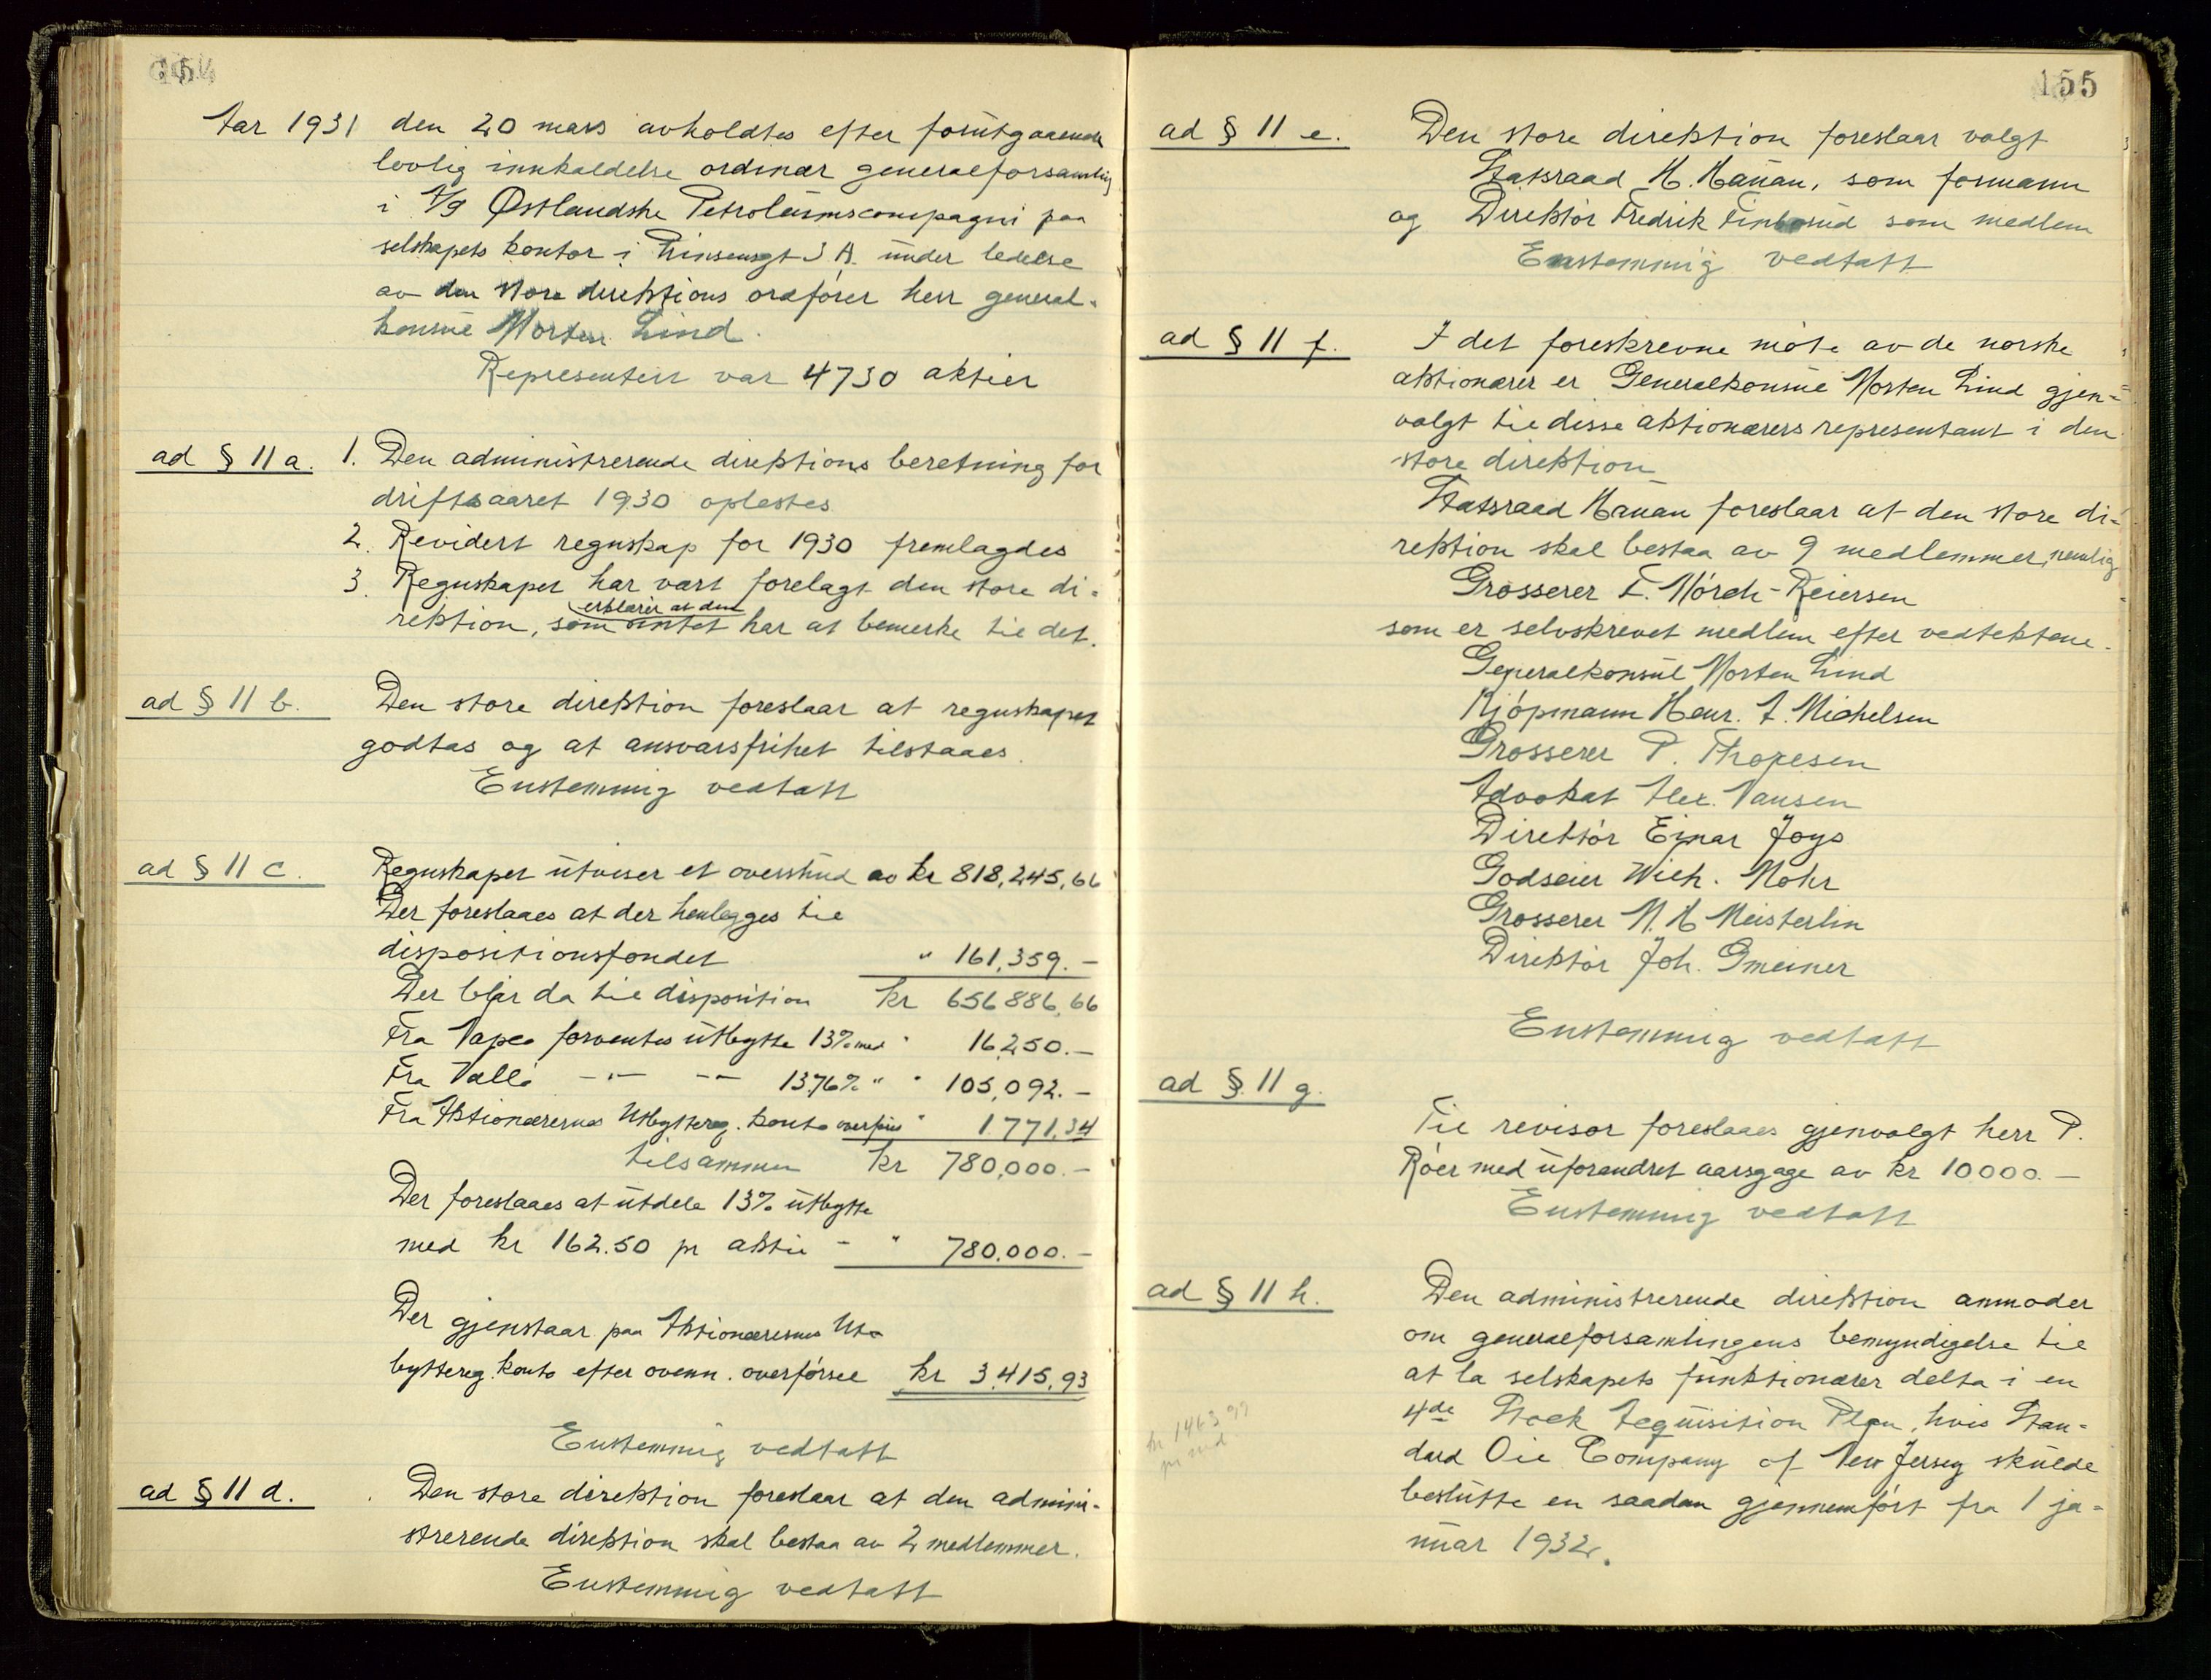 154
Aar 1931 den 20 mars avholdtes efter forutgaaende
lovlig innkaldelse ordinær generalforsamling
i A/S Østlandske Petroleumscompagni paa
selskapets kontor i Prinsensgt 3 B. under ledelse
av den store direktions ordfører herr general-
konsul Morten Lind.
Representert var 4730 aktier
ad § 11 a. 1. Den administrerende direktions beretning for
driftsaaret 1930 oplestes
2. Revidert regnskap for 1930 fremlagdes
3. Regnskapet har vært forelagt den store di-
erklærer at den
rektion, som intet har at bemerke til det.
ad § 11 b. Den store direktion foreslaar at regnskapet
godtas og at ansvarsfrihet tilstaaes.
Enstemmig vedtatt
ad § 11 c. Regnskapet utviser et overskud av kr 818,245,66
Der foreslaaes at der henlegges til
dispositionsfondet " 161,359.-
Der blir da til disposition kr 656886,66
Fra Vapco forventes utbytte 13% med " 16,250.-
Fra Vallø -"- -"- 13,76% " " 105,092.-
Fra Aktionærernes Utbyttereg. konto overføres " 1.771,34
tilsammen kr 780,000.-
Der foreslaaes at utdele 13% utbytte
med kr 162.50 pr aktie - " 780.000.-
Der gjenstaar paa Aktionærernes Ut-
byttereg. konto efter ovenn. overførsel kr 3,415,93
Enstemmig vedtatt
ad § 11 d. Den store direktion foreslaar at den admini-
strerende direktion skal bestaa av 2 medlemmer.
Enstemmig vedtatt
155
ad § 11 e. Den store direktion foreslaar valgt
Statsraad H. Hauan, som formann
og Direktör Fredrik som medlem
Enstemmig vedtatt
ad § 11 f. I det foreskrevne møte av de norske
aktionærer er Generalkonsul Morten Lind gjen-
valgt til disse aktionærers representant i den
store direktion
Statsraad Hauan foreslaar at den store di-
rektion skal bestaa av 9 medlemmer, nemlig
Grosserer F. Mörch-Reiersen
som er selvskrevet medlem efter vedtektene.
Generalkonsul Morten Lind
Kjöpmann Henr. A. Michelsen
Grosserer P. Thoresen
Advokat Alex. Nansen
Direktör Einar Joys
Godseier Wilh. Mohr
Grosserer N. H Meisterlin
Direktör Joh. Gmeiner
Enstemmig vedtatt
ad § 11 g.
Til revisor foreslaaes gjenvalgt herr P.
Röer med uforandret aarsgage av kr 10,000.-
Enstemmig vedtatt
ad § 11 h. Den administrerende direktion anmoder
om generalforsamlingens bemyndigelse til
at la selskapets funktionærer delta i en
4de Stock Acquisition Plan, hvis Stan-
dard Oil Company of New Jersey skulde
beslutte en saadan gjennemført fra 1 ja-
nuar 1932.